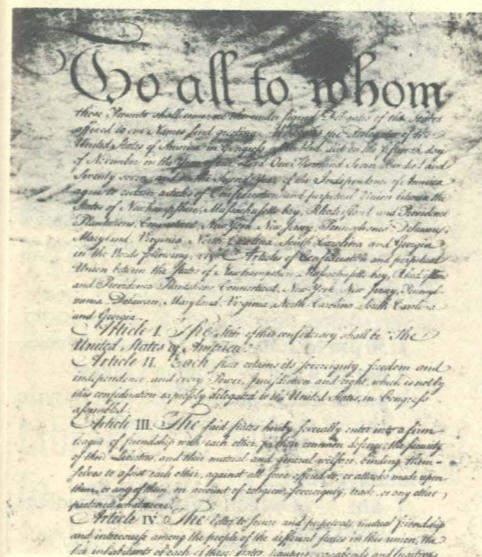 To all to whom
these Presents shall come, we the under signed Delegates of the States
affixed to our Names send greeting. Whereas the Delegates of the
United States of America in Congress assembled did on the fifteenth day
of November in the Year of our Lord One Thousand Seven Hundred and
Seventy seven, and in the Second Year of the Independence of America
agree to certain articles of Confederation and perpetual Union between the
States of Newhampshire, Massachusetts-bay, Rhodeisland and Providence
Plantations, Connecticut, New York, New Jersey, Pennsylvania, Delaware,
Maryland, Virginia, North-Carolina, South-Carolina and Georgia
in the Words following, viz. Articles of Confederation and perpetual
Union between the States of Newhampshire, Massachusetts-bay, Rhodeisland
and Providence Plantations, Connecticut, New-York, New-Jersey, Pennsyl-
vania, Delaware, Maryland, Virginia, North-Carolina, South-Carolina
and Georgia.
Article I. The Stile of this confederacy shall be "The
United States of America."
Article II. Each state retains its sovereignty, freedom and
independence, and every Power, Jurisdiction and right, which is not by
this confederation expressly delegated to the United States, in Congress
assembled.
Article III. The said states hereby severally enter into a firm
league of friendship with each other, for their common defence, the security
of their Liberties, and their mutual and general welfare, binding them-
selves to assist each other, against all force offered to, or attacks made upon
them, or any of them, on account of religion, sovereignty, trade, or any other
pretence whatever.
Article IV. The better to secure and perpetuate mutual friendship
and intercourse among the people of the different states in this union, the
free inhabitants of each of these states, paupers, vagabonds and fugitives